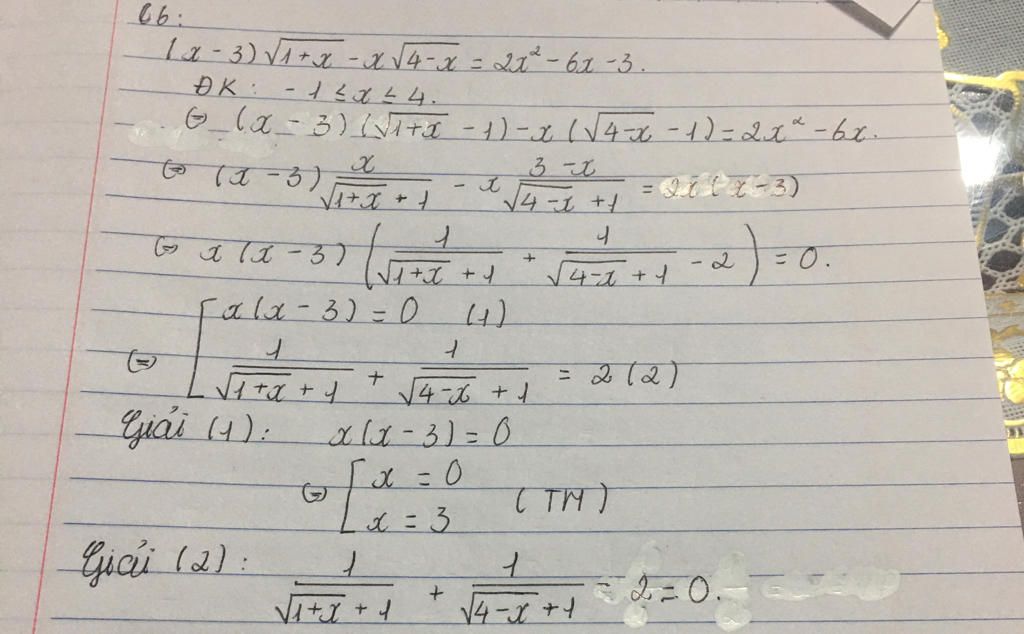 C6:
(x-3)√(1+x) - x√(4-x) = 2x² - 6x - 3.
ĐK: -1 ≤ x ≤ 4.
⇔ (x-3)(√(1+x) - 1) - x(√(4-x) - 1) = 2x² - 6x.
⇔ (x-3) x/(√(1+x) + 1) - x (3-x)/(√(4-x) + 1) = 2x(x-3)
⇔ x(x-3)(1/(√(1+x) + 1) + 1/(√(4-x) + 1) - 2) = 0.
⇔ [ x(x-3) = 0 (1)
1/(√(1+x) + 1) + 1/(√(4-x) + 1) = 2 (2)
Giải (1): x(x-3) = 0
⇔ [ x = 0
x = 3 (TM)
Giải (2): 1/(√(1+x) + 1) + 1/(√(4-x) + 1) - 2 = 0.